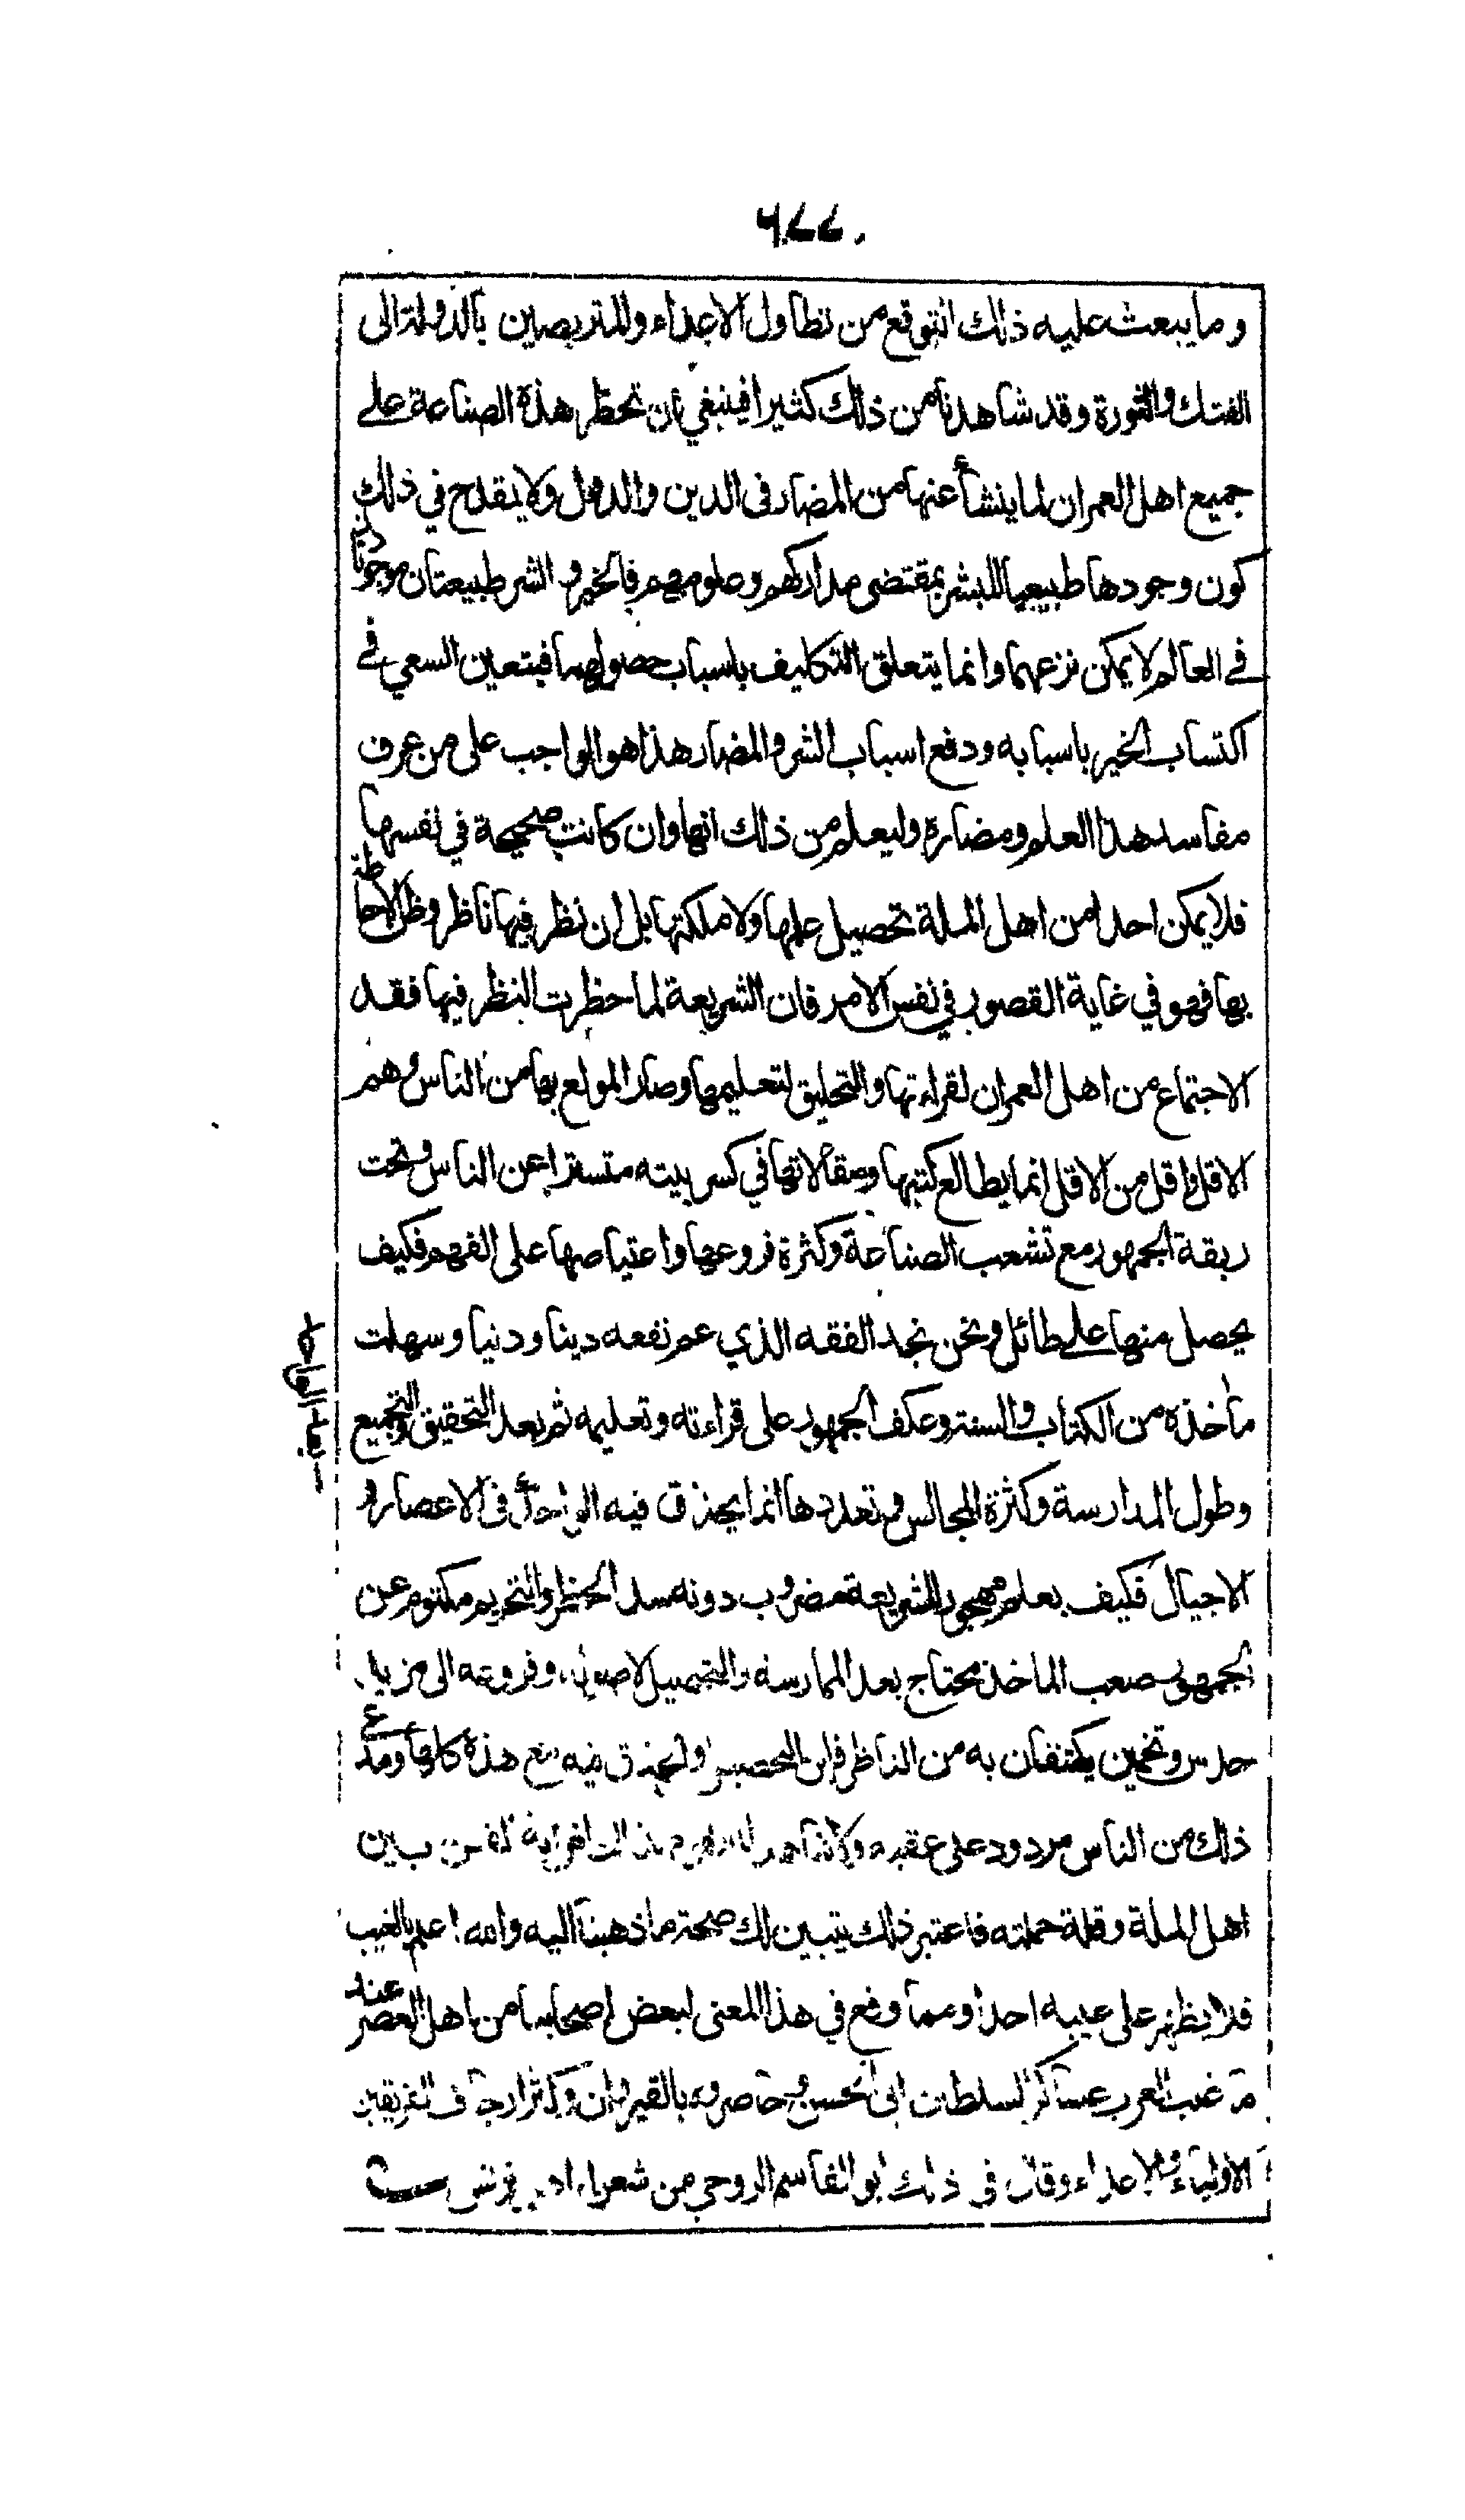 ٦٧٧
وما يبعث عليه ذلك التوقع من تطاول الاعداء والمتربصين بالدولة الى
الفتك والثورة وقد شاهدنا من ذلك كثيرا فينبغي ان تحظر هذه الصناعة على
جميع اهل العمران لما ينشأ عنها من المضار في الدين والدول ولا يقدح في ذلك
كون وجودها طبيعيا للبشر بمقتضى مداركهم وعلومهم فالخير والشر طبيعتان موجودتان
في العالم لا يمكن نزعهما وانما يتعلق التكليف باسباب حصولهما فيتعين السعي في
اكتساب الخير باسبابه ودفع اسباب الشر والمضار هذا هو الواجب على من عرف
مفاسد هذا العلم ومضاره وليعلم من ذلك انها وان كانت صحيحة في نفسها
فلا يمكن احدا من اهل الملة تحصيل علمها ولا ملكتها بل ان نظر فيها ناظر وظن الاحاطة
بها فهو في غاية القصور في نفس الامر فان الشريعة لما حظرت النظر فيها فقد
الاجتماع من اهل العمران لقراءتها والتحليق لتعليمها وصار المولع بها من الناس وهم
الاقل واقل من الاقل انما يطالع كتبها ومقالاتها في كسر بيته متسترا عن الناس وتحت
ربقة الجمهور مع تشعب الصناعة وكثرة فروعها واعتياصها على الفهم فكيف
يحصل منها على طائل ونحن نجد الفقه الذي عم نفعه دينا ودنيا وسهلت
مأخذه من الكتاب والسنة وعكف الجمهور على قراءته وتعليمه ثم بعد التحقيق والتجميع
وطول المدارسة وكثرة المجالس وتعددها انما يحذق فيه الواحد في الاعصار و
الاجيال فكيف بعلم مهجور للشريعة مضروب دونه سد الحظر والتحريم مكتوم عن
الجمهور صعب الماخذ محتاج بعد الممارسة والتحصيل لاصوله وفروعه الى مزيد
حدس وتخمين يكتنفان به من الناظر فاين التحصيل والحذق فيه مع هذه كلها ومدعي
ذلك من الناس مردود على عقبه ولا شاهد له يقوم بذلك لغرابة الفن بين
اهل الملة وقلة حملته فاعتبر ذلك يتبين لك صحة ما ذهبنا اليه والله اعلم بالغيب
فلا يظهر على غيبه احدا ومما وقع في هذا المعنى لبعض اصحابنا من اهل العصر عند
ما غلب العرب عساكر السلطان ابى الحسن وحاصروه بالقيروان وكثر ارجاف الفريقين
الاولياء والاعداء وقال في ذلك ابو القاسم الروحي من شعراء اهل تونس